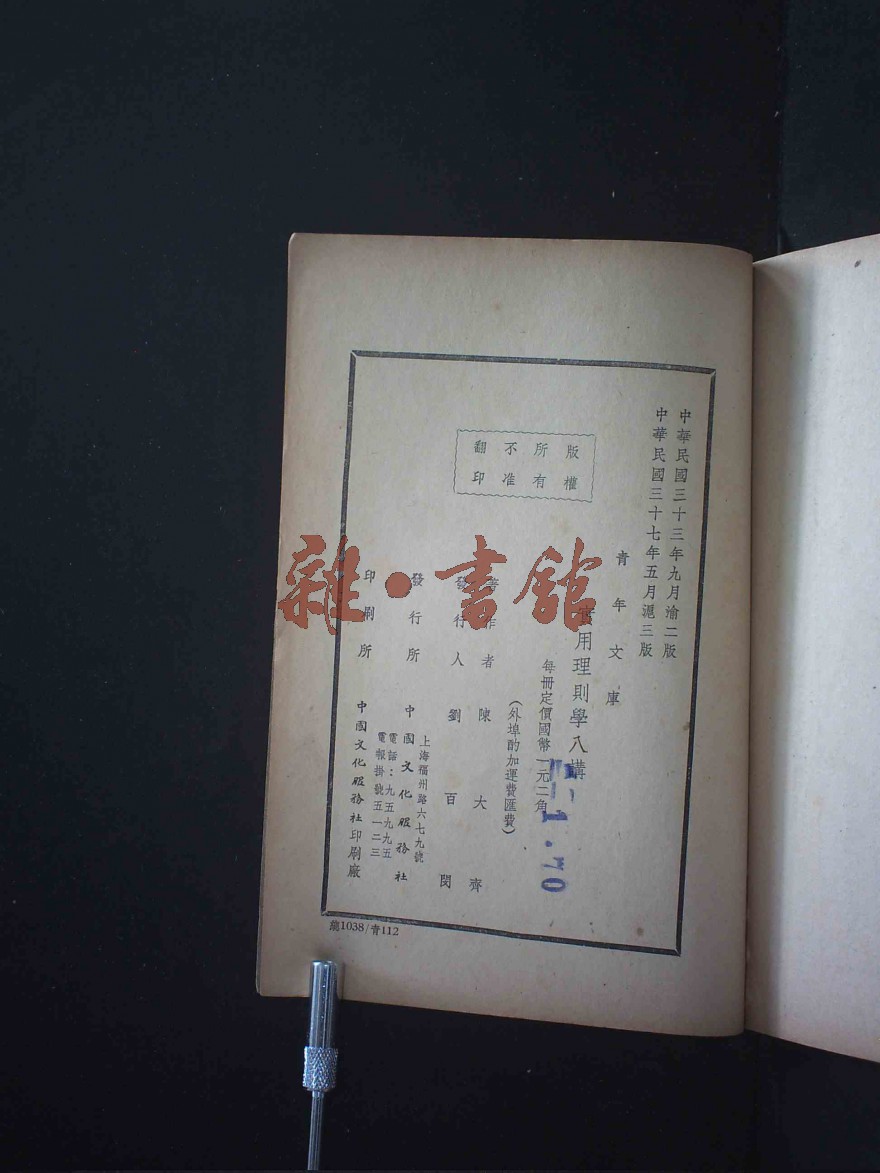 中華民國三十三年九月渝二版
中華民國三十七年五月滬三版
青年文庫
實用理則學八講
每冊定價國幣一元二角
(外埠酌加運費匯費)
版權所有
不准翻印
著作者 陳大齊
發行人 劉百閔
發行所 中國文化服務社
上海福州路六七九號
電話：九五九九五
電報掛號五一二三
印刷所 中國文化服務社印刷廠
1.70
總1038/青112
雜·書館